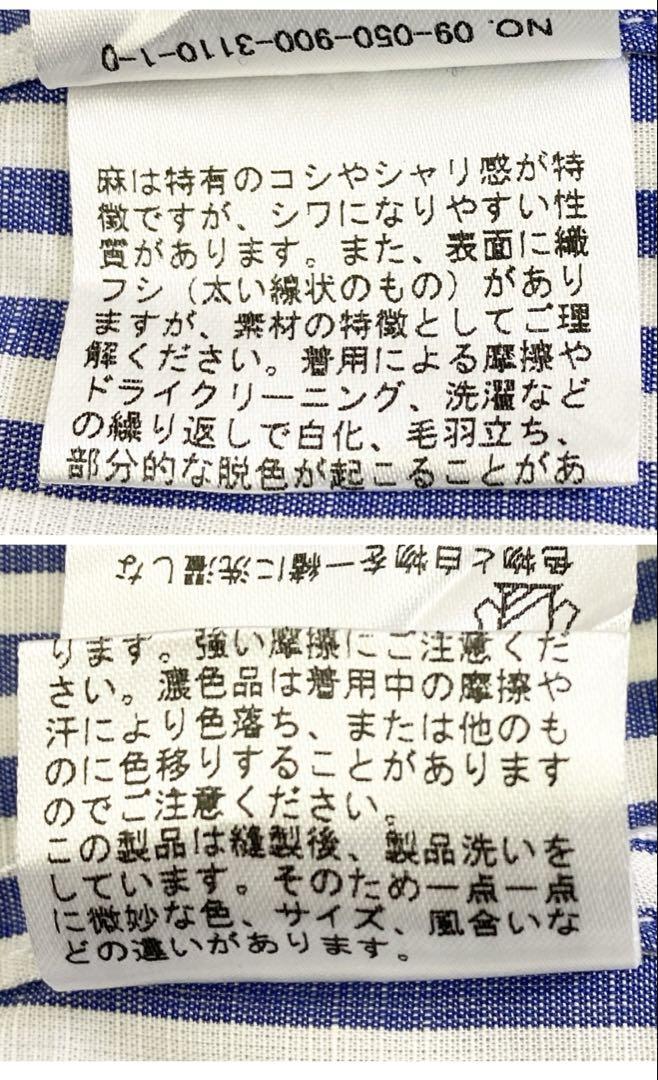 NO. 09-050-900-3110-1-0
麻は特有のコシやシャリ感が特
徴ですが、シワになりやすい性
質があります。また、表面に織
フシ（太い線状のもの）があり
ますが、素材の特徴としてご理
解ください。着用による摩擦や
ドライクリーニング、洗濯など
の繰り返しで白化、毛羽立ち、
部分的な脱色が起こることがあ
色物と白物を一緒に洗濯しな
ります。強い摩擦にご注意くだ
さい。濃色品は着用中の摩擦や
汗により色落ち、または他のも
のに色移りすることがあります
のでご注意ください。
この製品は縫製後、製品洗いを
しています。そのため一点一点
に微妙な色、サイズ、風合いな
どの違いがあります。